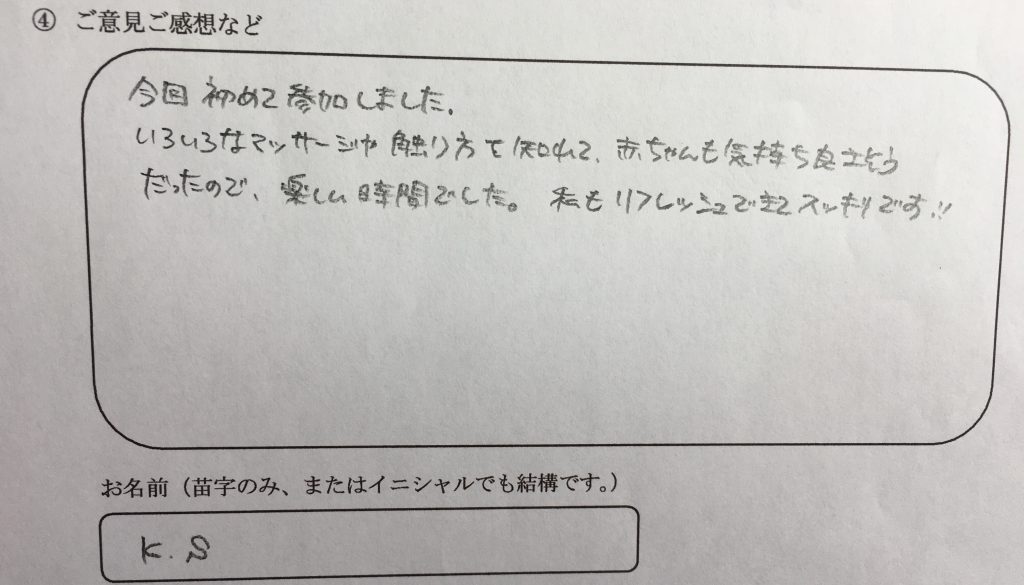 ④ ご意見ご感想など
今回 初めて参加しました。
いろいろなマッサージや 触り方て知れて、赤ちゃんも気持ち良さそう
だったので、楽しい時間でした。 私もリフレッシュできてスッキリです!!
お名前（苗字のみ、またはイニシャルでも結構です。）
K. S